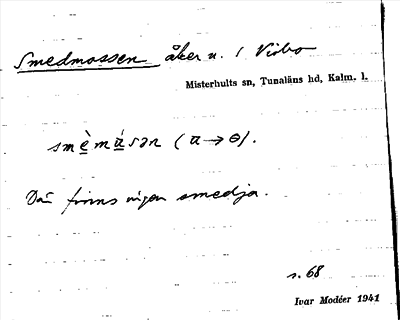 Smedmossen åker u. / Virbo
Misterhults sn, Tunaläns hd, Kalm. l.
smèmásən (a→ɵ).
Där finns ingen smedja.
s. 68
Ivar Modéer 1941